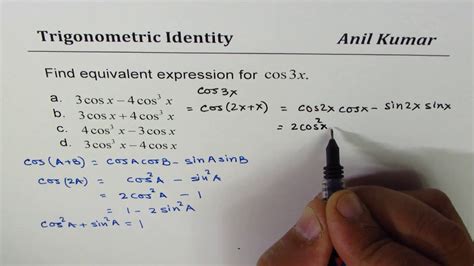 Trigonometric Identity Anil Kumar
Find equivalent expression for cos 3x.
cos3x
a. 3 cos x − 4 cos³ x = cos(2x+x) = cos2x cosx − sin2x sinx
b. 3 cos x + 4 cos³ x = 2cos²x
c. 4 cos³ x − 3 cos x
d. 3 cos x − 4 cos³ x
cos(A+B) = cosA cosB − sinA sinB
cos(2A) = cos²A − sin²A
= 2cos²A − 1
= 1 − 2sin²A
cos²A + sin²A = 1